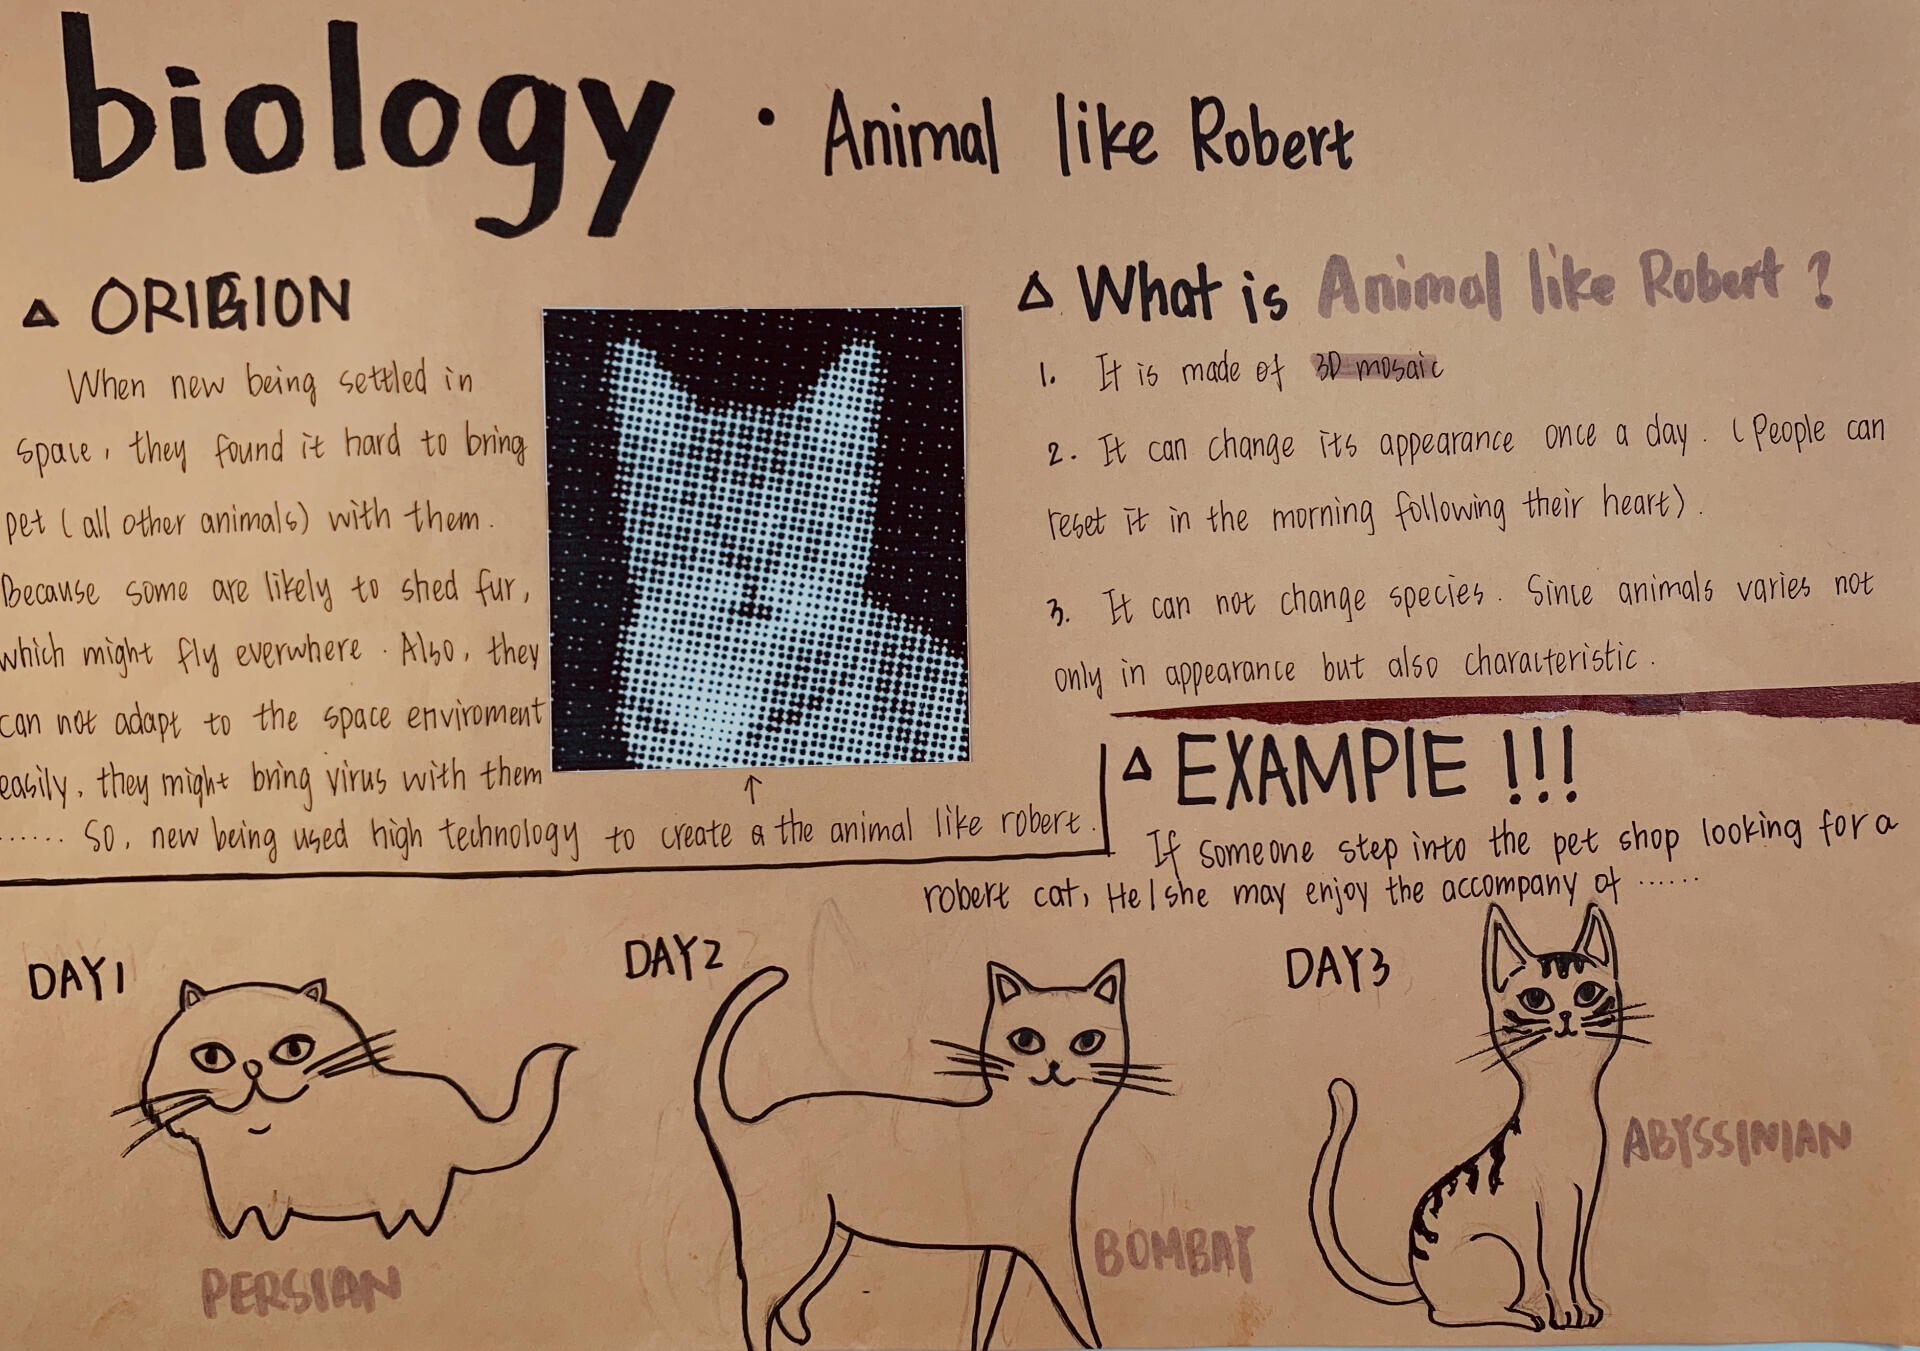 biology · Animal like Robert
△ ORIGION
When new being settled in
space, they found it hard to bring
pet (all other animals) with them.
Because some are likely to shed fur,
which might fly everwhere. Also, they
can not adapt to the space enviroment
easily, they might bring virus with them
...... So, new being used high technology to create the animal like robert.
△ What is Animal like Robert?
1. It is made of 3D mosaic
2. It can change its appearance once a day. (People can
reset it in the morning following their heart).
3. It can not change species. Since animals varies not
only in appearance but also characteristic.
△ EXAMPlE !!!
If someone step into the pet shop looking for a
robert cat, He/she may enjoy the accompany of ......
DAY1
PERSIAN
DAY2
BOMBAY
DAY3
ABYSSINIAN